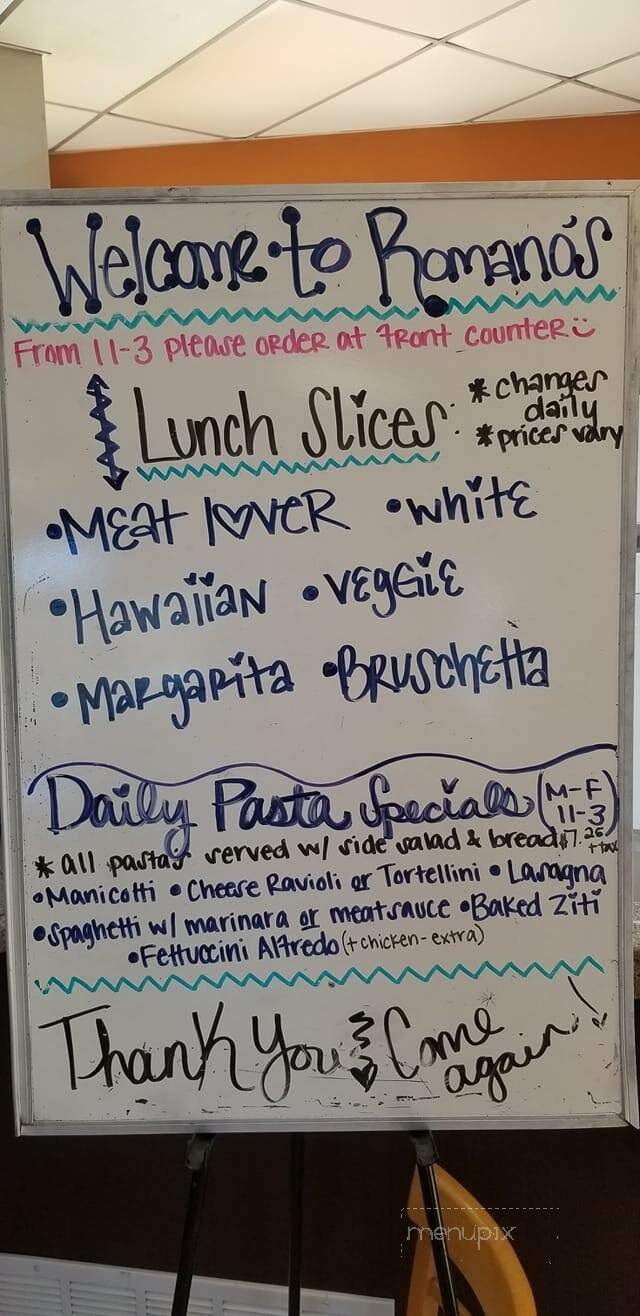 Welcome to Romano's
From 11-3 please order at front counter
Lunch Slices: * changes daily
* prices vary
• Meat lover • White
• Hawaiian • Veggie
• Margarita • Bruschetta
Daily Pasta Specials (M-F 11-3)
* all pastas served w/ side salad & bread $7.25 + tax
• Manicotti • Cheese Ravioli or Tortellini • Lasagna
• Spaghetti w/ marinara or meatsauce • Baked Ziti
• Fettuccini Alfredo (+ chicken-extra)
Thank You & Come again
menupix